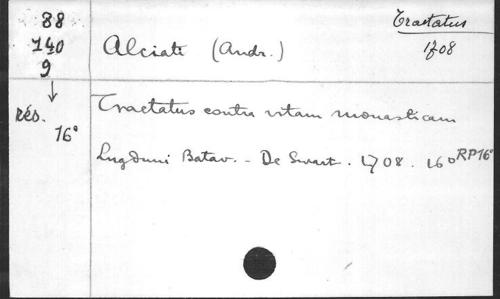 88
140
9
↓
rés.
16°
Alciati (Andr.)
Tractatus
1708
Tractatus contra vitam monasticam
Lugduni Batav. - De Swart. 1708. 16° RP16°